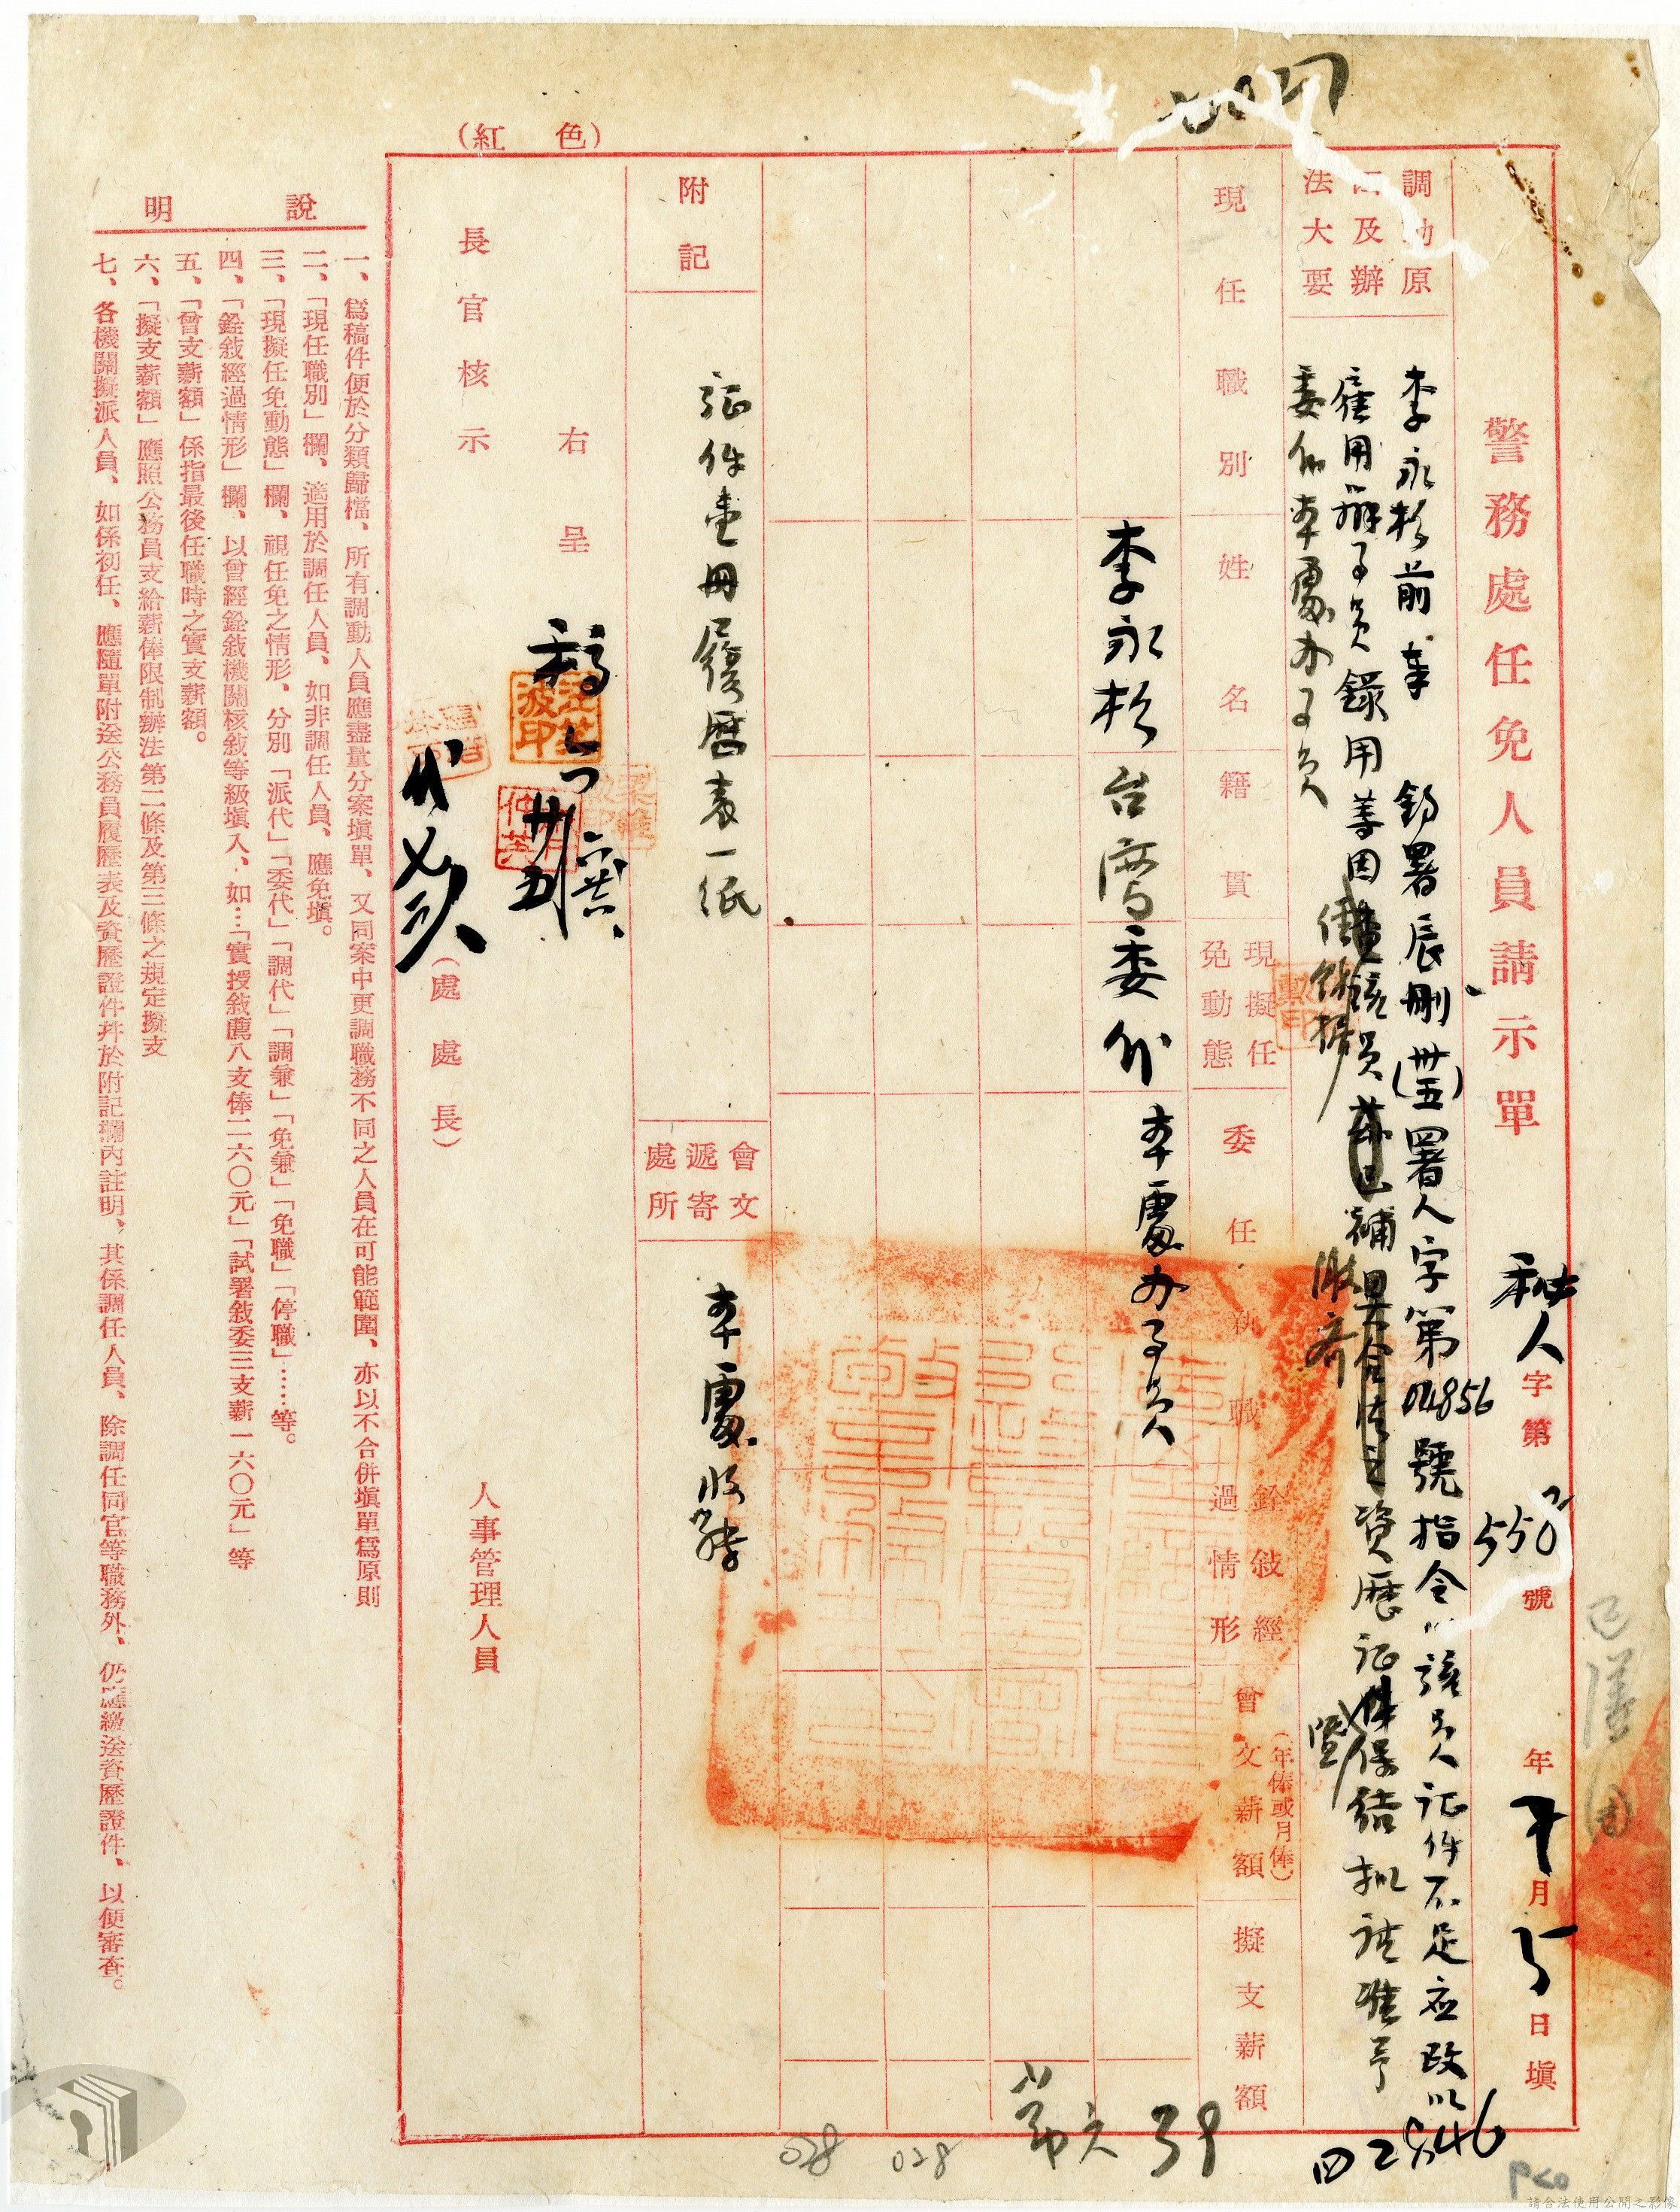 (紅色)
警務處任免人員請示單
秘人字第550號
年7月5日填
調動原
因及辦
法大要
李永杉前奉 鈞署辰刪(卅五)署人字第04856號指令以該員証件不足應改以
雇用辦事員錄用等因該員已補資歷証件保結擬請准予
委任本處办事員
現任職別
姓名
籍貫
現擬任
免動態
委任執職
銓敘經
過情形
曾文薪額
(年俸或月俸)
擬支薪額
李永杉
台灣
委代
本處办事員
附記
証件壹冊履歷表一紙
會文
遞寄
處所
本處收轉
右呈
長官核示
(處處長)
人事管理人員
說明
一、爲稿件便於分類歸檔、所有調動人員應盡量分案塡單、又同案中更調職務不同之人員在可能範圍、亦以不合併塡單爲原則
二、「現任職別」欄、適用於調任人員、如非調任人員、應免塡。
三、「現擬任免動態」欄、視任免之情形、分別「派代」「委代」「調代」「調兼」「免兼」「免職」「停職」……等。
四、「銓敘經過情形」欄、以曾經銓敘機關核敘等級塡入、如…「實授敘薦八支俸二六〇元」「試署敘委三支薪一六〇元」等
五、「曾支薪額」係指最後任職時之實支薪額。
六、「擬支薪額」應照公務員支給薪俸限制辦法第二條及第三條之規定擬支
七、各機關擬派人員、如係初任、應隨單附送公務員履歷表及資歷證件幷於附記欄內註明、其係調任人員、除調任同官等職務外、仍應繳送資歷證件、以便審查。
39
028
028
請合法使用公開之影像